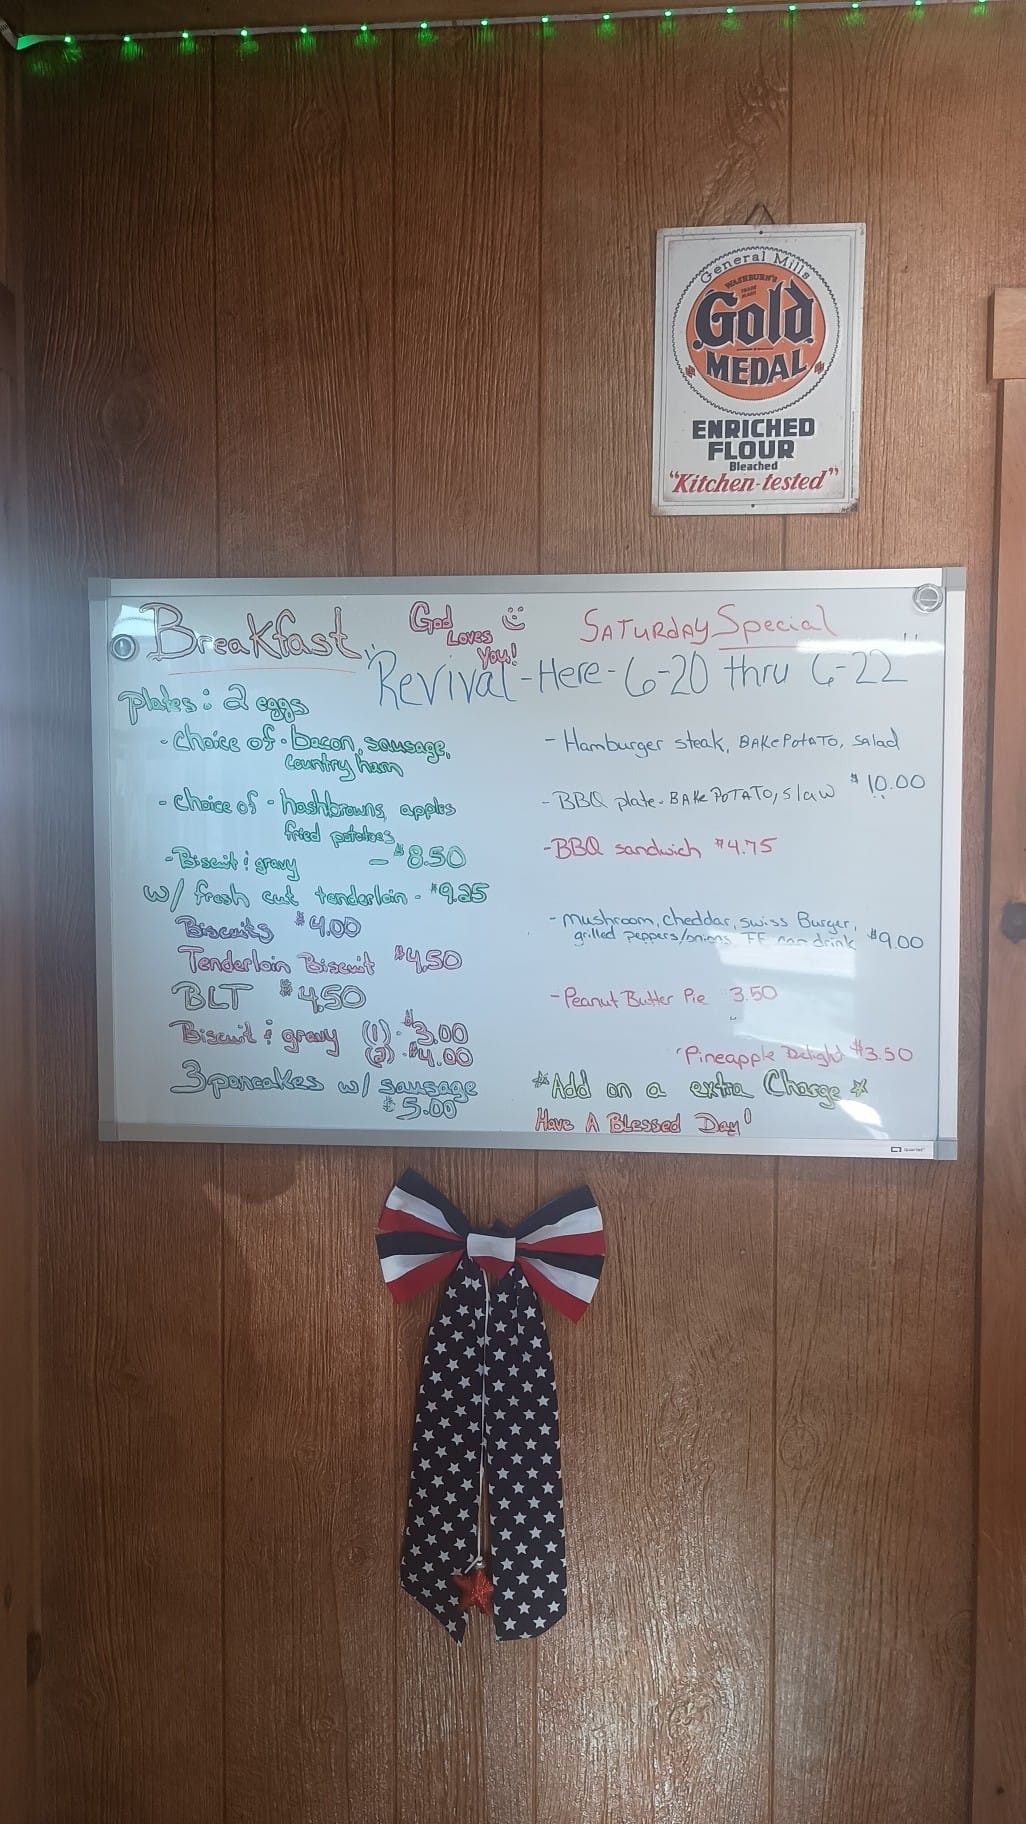 General Mills
WASHBURN'S
TRADE MARK
Gold
MEDAL
ENRICHED
FLOUR
Bleached
"Kitchen-tested"
Breakfast
God
Loves
You!
SATURDAY Special
Revival - Here - 6-20 thru 6-22
plates: 2 eggs
- choice of - bacon, sausage,
country ham
- choice of - hashbrowns, apples
fried potatoes
- Biscuit & gravy - $8.50
w/ fresh cut tenderloin - $9.25
Biscuits $4.00
Tenderloin Biscuit $4.50
BLT $4.50
Biscuit & gravy (1) - $3.00
(2) - $4.00
3 pancakes w/ sausage
$5.00
- Hamburger steak, BAKE POTATO, salad
$10.00
- BBQ plate - BAKE POTATO, slaw
- BBQ sandwich $4.75
- mushroom, cheddar, swiss Burger,
grilled peppers/onions FF can drink $9.00
- Peanut Butter Pie 3.50
Pineapple Delight $3.50
*Add on a extra Charge*
Have A Blessed Day!
quartet